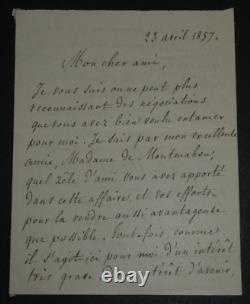 23 avril 1857.
Mon cher ami,
Je vous suis on ne peut plus
reconnaissant des négociations
que vous avez bien voulu entamer
pour moi. Je sais par mon excellente
amie, Madame de Montmahou,
quel zèle d'ami vous avez apporté
dans cette affaire, et vos efforts
pour la rendre aussi avantageuse
que possible. Toutefois, comme
il s'agit ici pour moi d'un intérêt
très grave intérêt d'avenir,